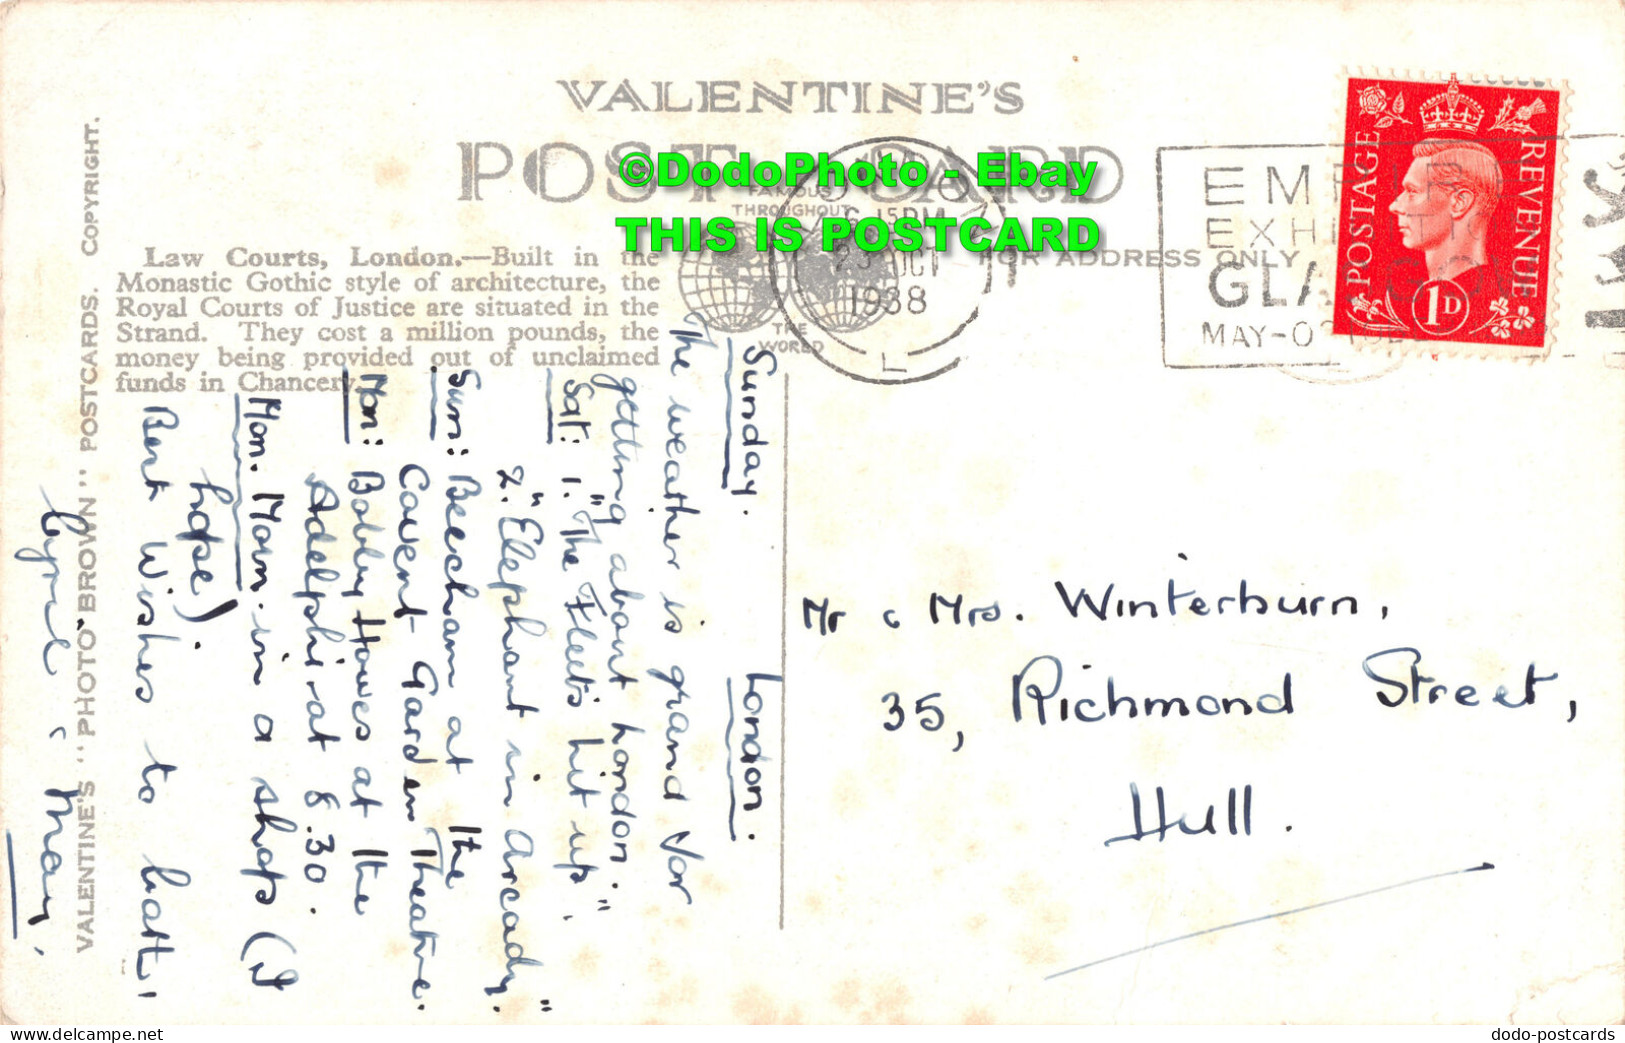 VALENTINE'S
POST CARD
FAMOUS
THROUGHOUT
THE
WORLD
FOR ADDRESS ONLY
©DodoPhoto - Ebay
THIS IS POSTCARD
Law Courts, London.—Built in the
Monastic Gothic style of architecture, the
Royal Courts of Justice are situated in the
Strand. They cost a million pounds, the
money being provided out of unclaimed
funds in Chancery.
VALENTINE'S "PHOTO BROWN" POSTCARDS. COPYRIGHT.
6.15PM
23 OCT
1938
L
EMPIRE
EXHIBITION
GLASGOW
MAY-OCT
POSTAGE
REVENUE
1D
Sunday. London.
The weather is grand for
getting about London.
Sat: 1. "The Fleet's hit up",
2. "Elephant in Arcady."
Sun: Beecham at the
Covent Garden Theatre.
Mon: Bobby Howes at the
Adelphi at 8.30.
Mon. Morn. in a shop (I
hope).
Best Wishes to both,
Cyril & May.
Mr & Mrs. Winterburn,
35, Richmond Street,
Hull.
Bent Wishes to hatt
dodo-postcards